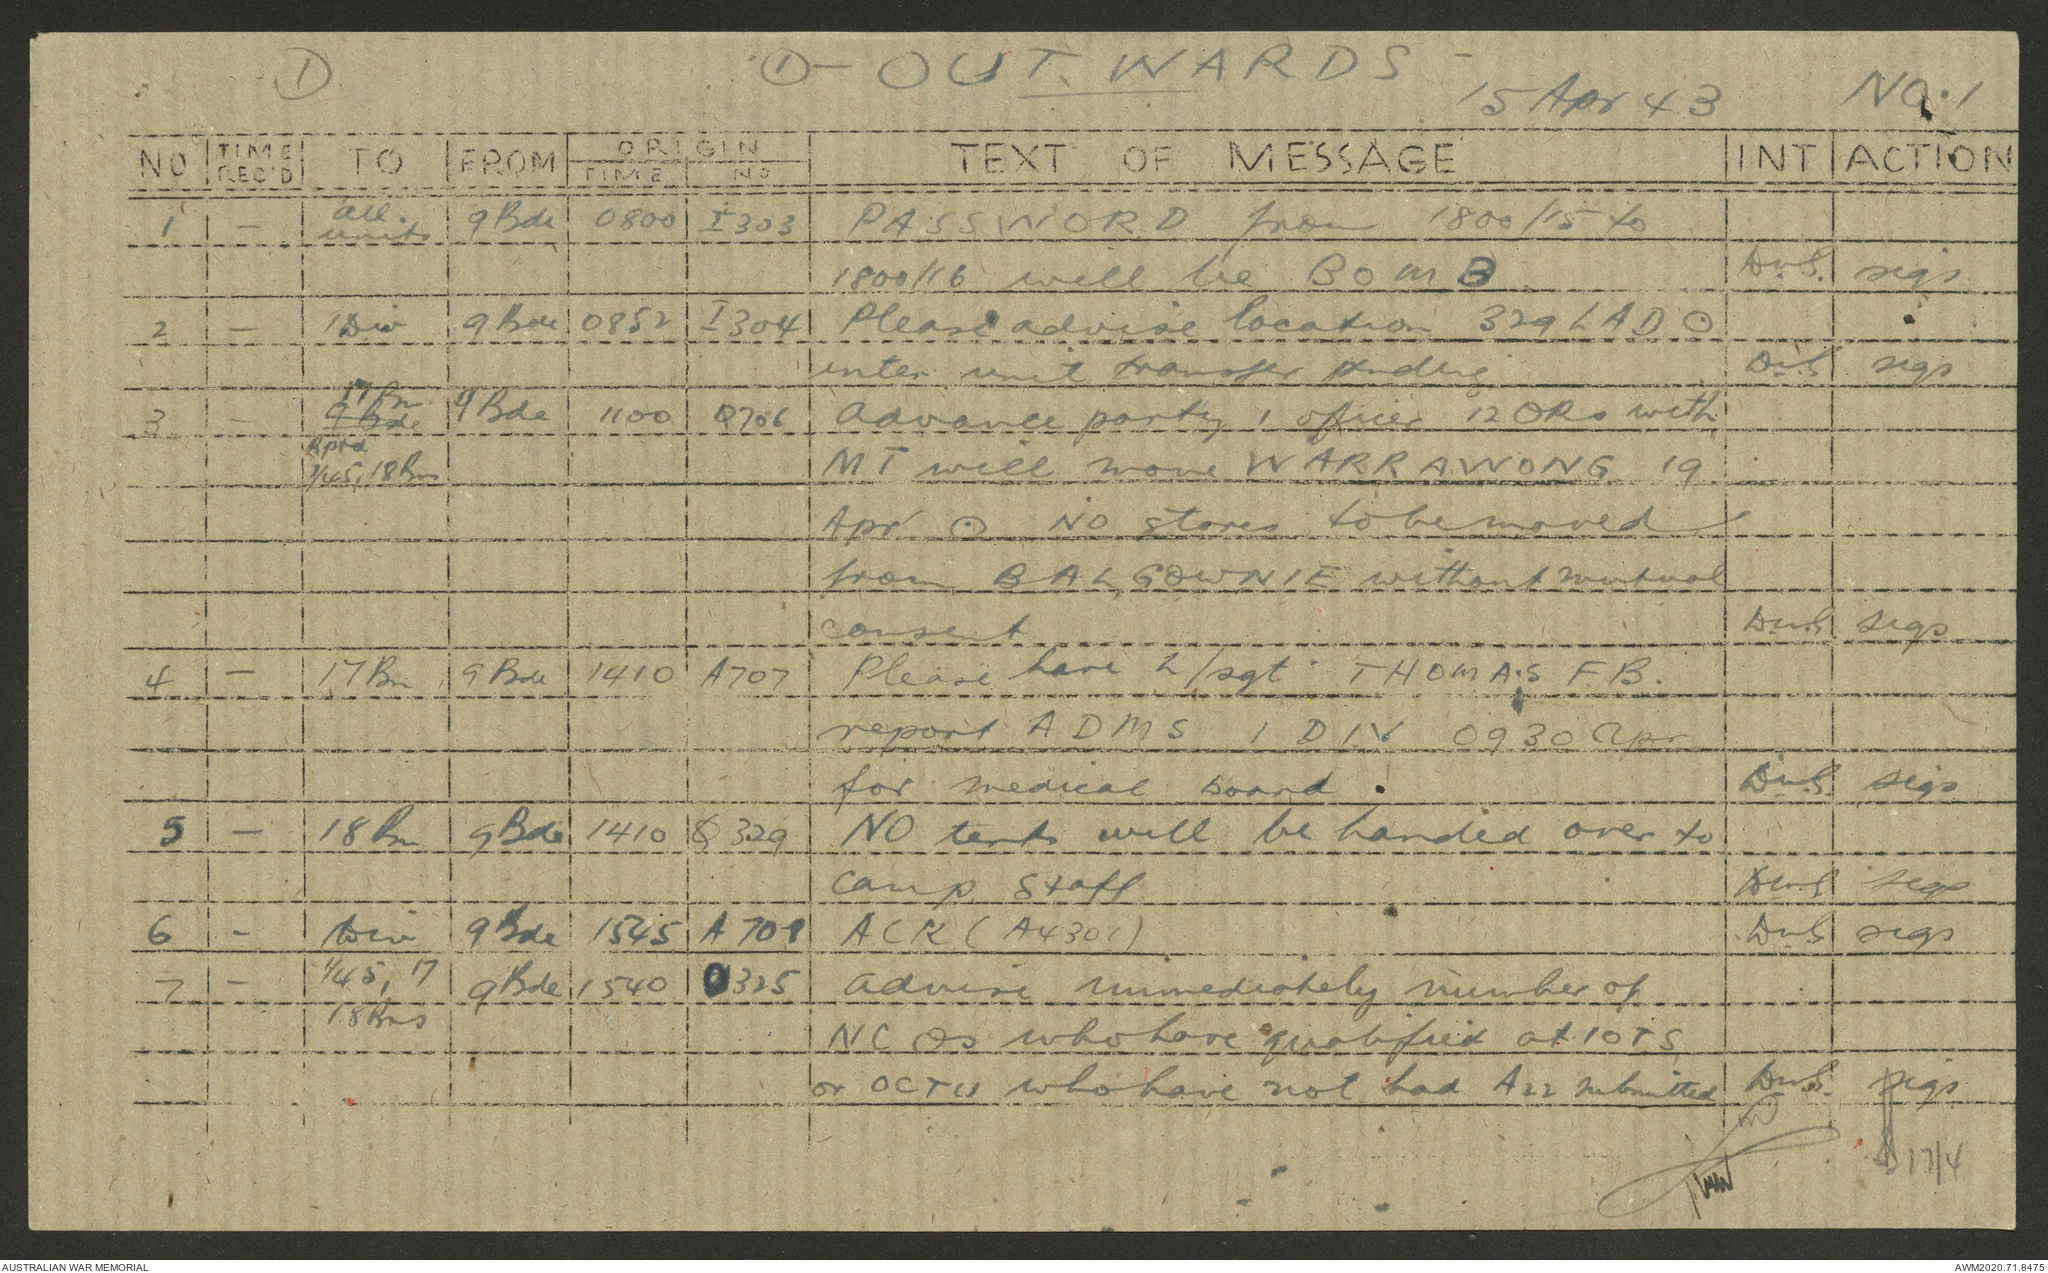 ① ① - OUTWARDS -
15 Apr 43 NO. 1
NO TIME REC'D TO FROM ORIGIN TIME NO TEXT OF MESSAGE INT ACTION
1 - all units 9 Bde 0800 I303 PASSWORD from 1800/15 to
1800/16 will be BOMB DWS. sigs
2 - 1 Div 9 Bde 0852 I304 Please advise location 329 LAD ⊙
inter unit transfer pending DWS sigs
3 - 17 Bn 9 Bde 9 Bde 1100 Q706 Advance party 1 officer 12 ORs with
Rptd 1/45, 18 Bns MT will move WARRAWONG 19
Apr ⊙ NO stores to be moved
from BALGOWNIE without mutual
consent D.W.S. sigs
4 - 17 Bn 9 Bde 1410 A707 Please have L/sgt THOMAS F B.
report ADMS 1 DIV 0930 Apr
for medical board. DWS. sigs
5 - 18 Bn 9 Bde 1410 Q329 NO tents will be handed over to
camp staff DWS sigs
6 - Div 9 Bde 1545 A708 ACK (A4301) DWS sigs
7 - 1/45, 17 9 Bde 1540 O325 advise immediately number of
18 Bns NCOs who have qualified at IOTS
or OCTU who have not had A22 submitted DWS. sigs
17/4
AUSTRALIAN WAR MEMORIAL AWM2020.71.8475